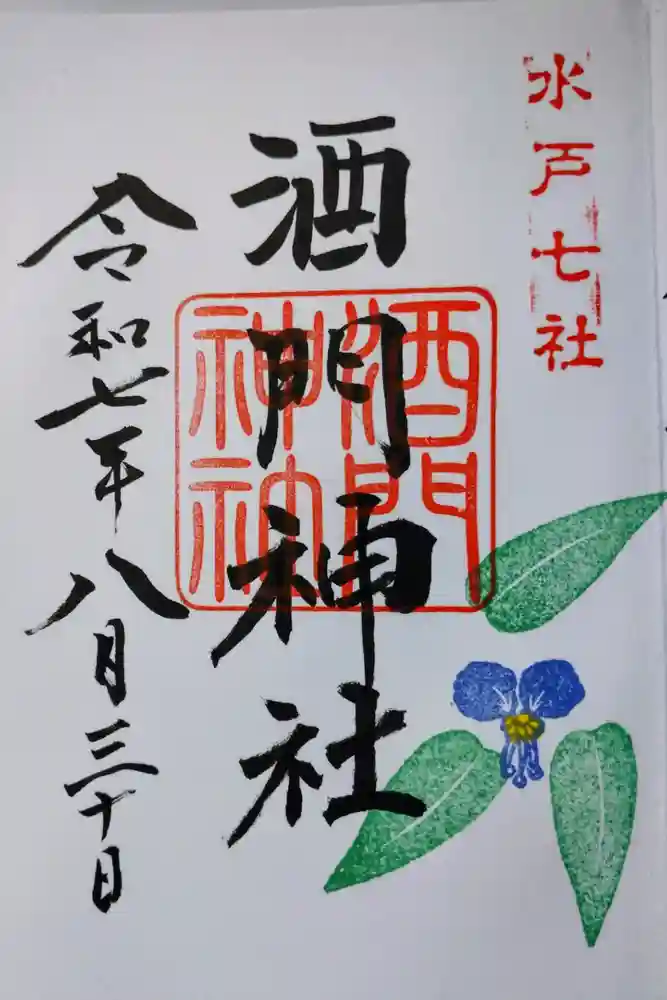 水戸七社
酒門神社
酒門
神社
令和七年八月三十日